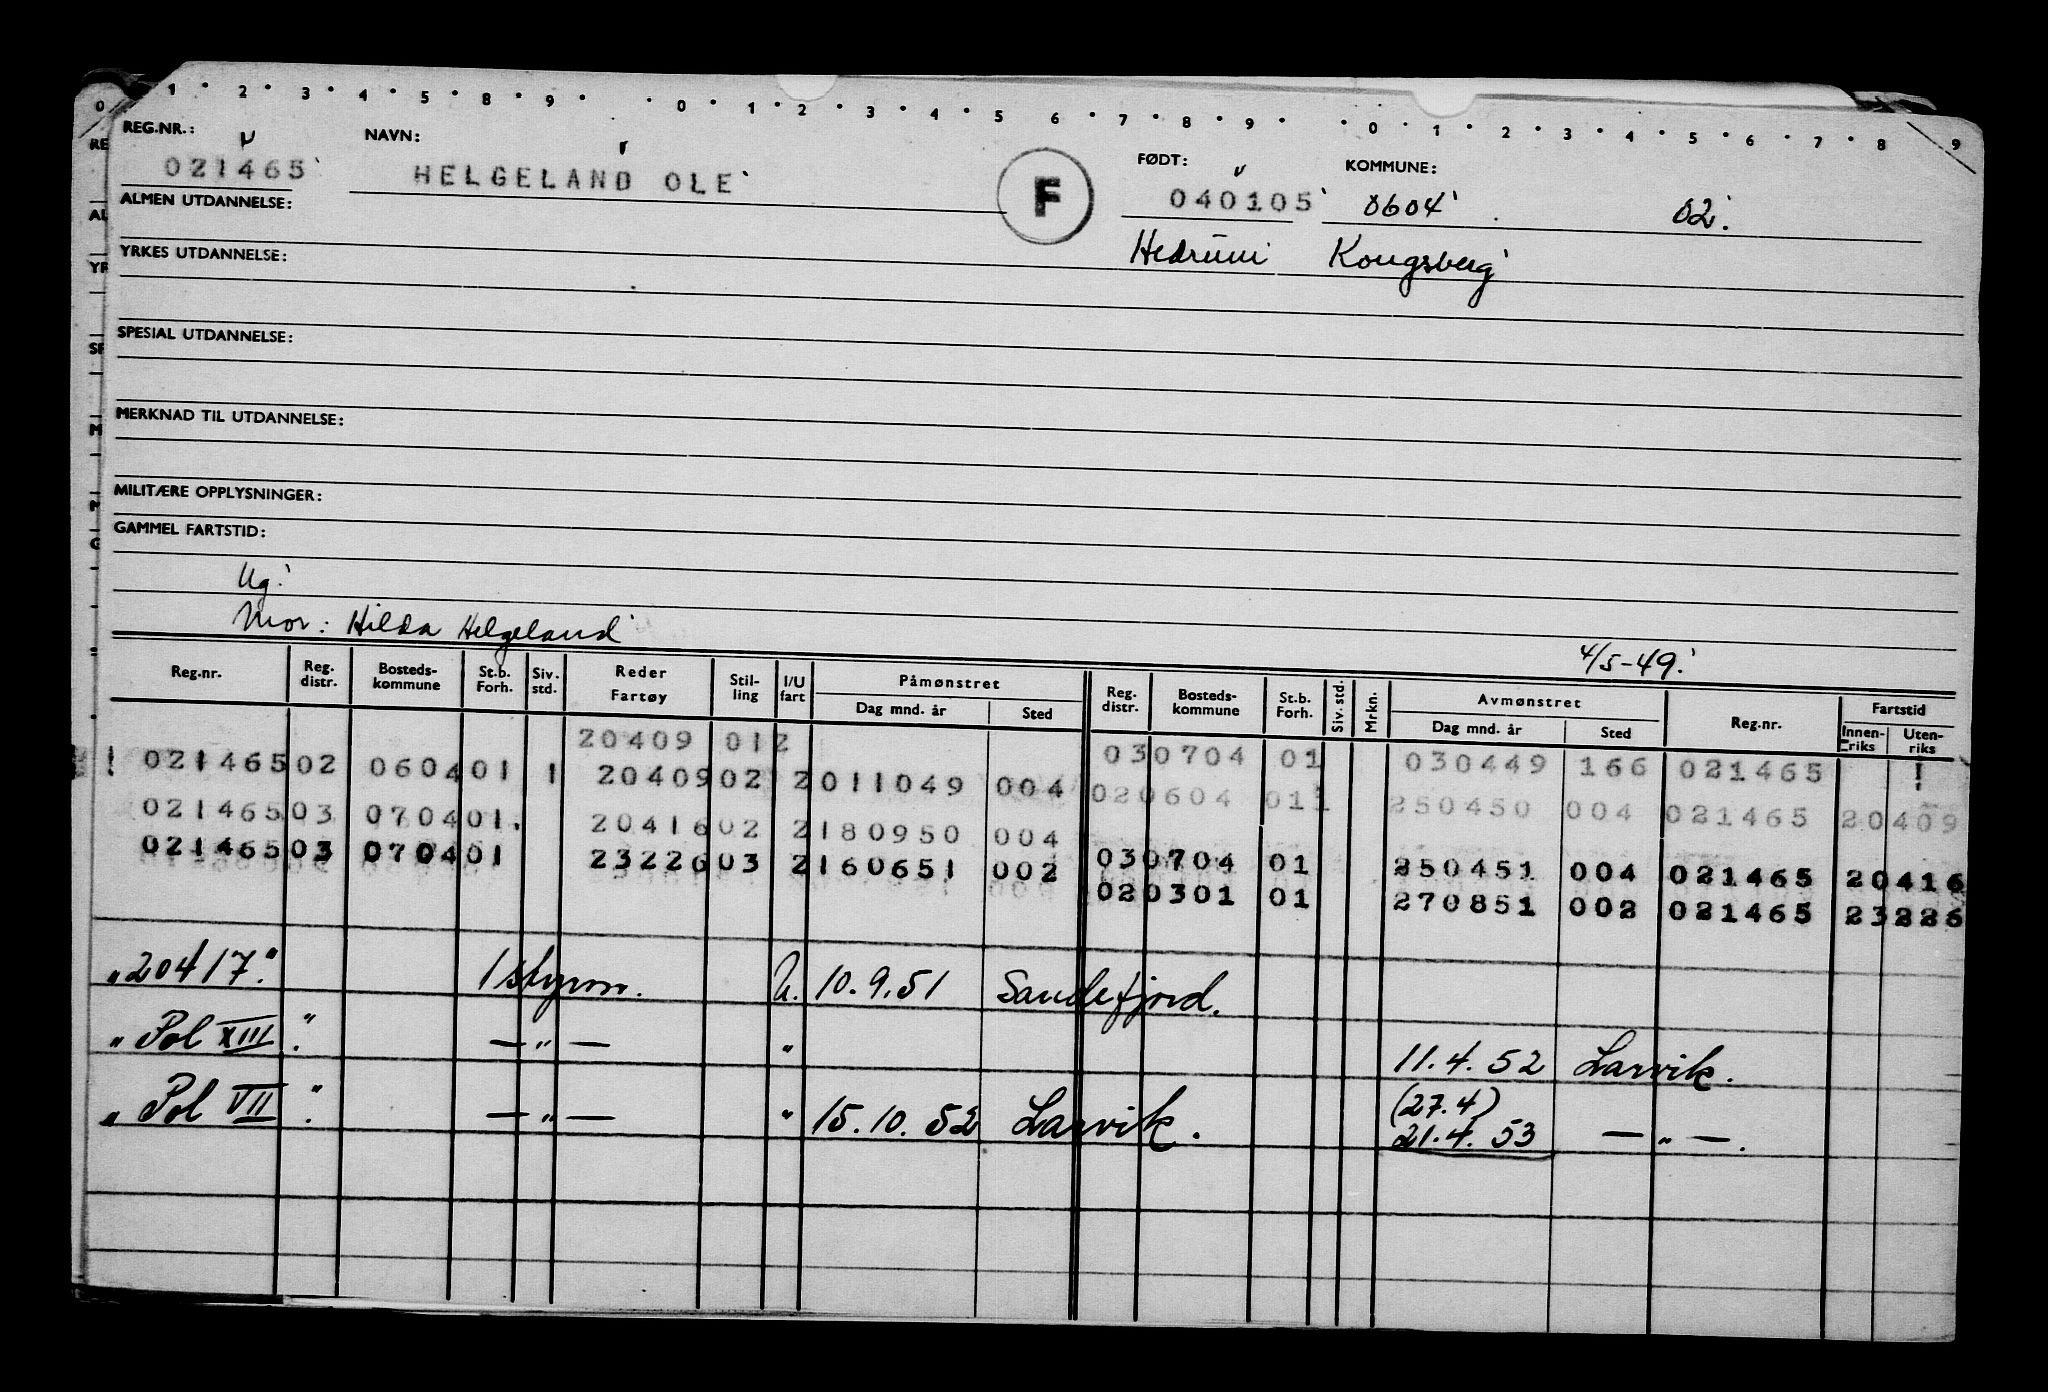 0 1 2 3 4 5 8 9 0 1 2 3 4 5 6 7 8 9 0 1 2 3 4 5 6 7 8 9
REG.NR.: NAVN: FØDT: KOMMUNE:
021465 HELGELAND OLE F 040105 0604 02.
ALMEN UTDANNELSE:
YRKES UTDANNELSE: Hedrum Kongsberg
SPESIAL UTDANNELSE:
MERKNAD TIL UTDANNELSE:
MILITÆRE OPPLYSNINGER:
GAMMEL FARTSTID:
Ug.
Mor: Hilda Helgeland
4/5-49.
Reg.nr. Reg. distr. Bosteds-kommune St.b. Forh. Siv. std. Reder Fartøy Stil-ling I/U fart Påmønstret Reg. distr. Bosteds-kommune St.b. Forh. Siv. std. Mrkn. Avmønstret Reg.nr. Fartstid
Dag mnd. år Sted Dag mnd. år Sted Innen-riks Uten-riks
20409 012 030704 01 030449 166 021465
021465 02 0604 01 1 20409 02 2 011049 004 020604 011 250450 004 021465 20409
021465 03 0704 01. 20416 02 2 180950 004 030704 01 250451 004 021465 20416
021465 03 0704 01 23226 03 2 160651 002 020301 01 270851 002 021465 23226
"20417." 1 styrm. U. 10.9.51 Sandefjord.
"Pol XIII". — " — " 11.4.52 Larvik.
"Pol VII". — " — " 15.10.52 Larvik. (27.4)
21.4.53 — " —.